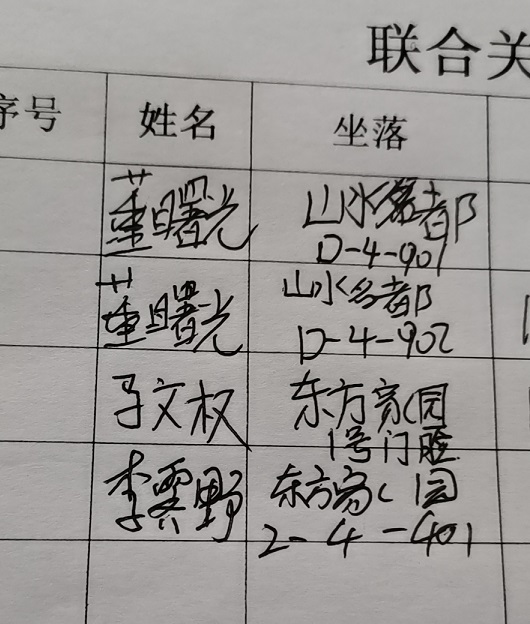 联合关
序号 姓名 坐落
董曙光 山水名都
D-4-901
董曙光 山水名都
D-4-902
子文权 东方家园
1号门脸
李云野 东方家园
2-4-401